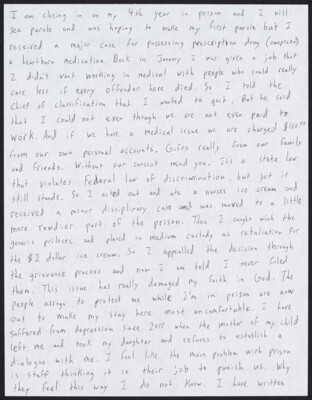 I am closing in on my 4th year in prison and I will
see parole and was hoping to make my first parole but I
received a major case for possessing prescription drug (omprozole)
a heartburn medication. Back in January I was given a job that
I didn't want working in medical with people who could really
care less if every offender here died. So I told the
chief of classification that I wanted to quit. But he said
that I could not even though we are not even paid to
work. And if we have a medical issue we are charged $100.00
from our own personal accounts, Gifts really from our family
and friends. Without our consent mind you. It's a state law
that violates Federal law of discrimination, but yet it
still stands. So I acted out and ate a nurses ice cream and
received a minor disciplinary case and was moved to a little
more rowdier part of the prison. Then I caught with the
generic prilosec and placed in medium custody as retaliation for
the $2 dollar ice cream. So I appealled the decision through
the grievance process and now I am told I never filed
them. This issue has really damaged my faith in God. The
people assign to protect me while I'm in prison are now
out to make my stay here most uncomfortable. I have
suffered from depression since 2012 when the mother of my child
left me and took my daughter and refuses to establish a
dialogue with me. I feel like the main problem with prison
is staff thinking it is their job to punish us. Why
they feel this way I do not know. I have written